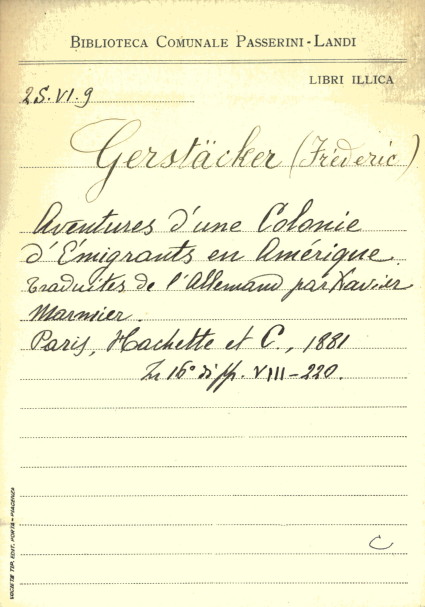 BIBLIOTECA COMUNALE PASSERINI-LANDI
LIBRI ILLICA
2S.VI.9
Gerstäcker (Fréderic)
Aventures d'une Colonie
d'Émigrants en Amérique.
Traduites de l'Allemand par Xavier
Marmier.
Paris, Hachette et C., 1881
In 16° di pp. VIII-220.
C
SOCIETÀ TIP. EDIT. PORTA - PIACENZA